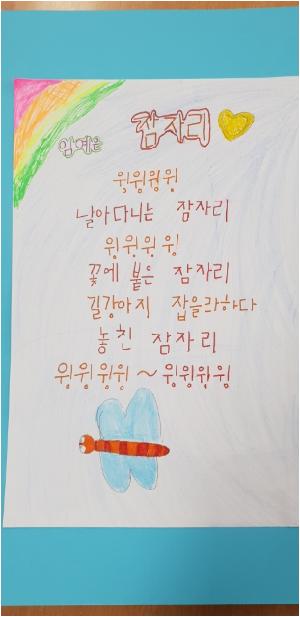 잠자리
임예은
윙윙윙윙
날아다니는 잠자리
윙윙윙윙
꽃에 붙은 잠자리
길강아지 잡을라하다
놓친 잠자리
윙윙윙윙 ~ 윙윙윙윙